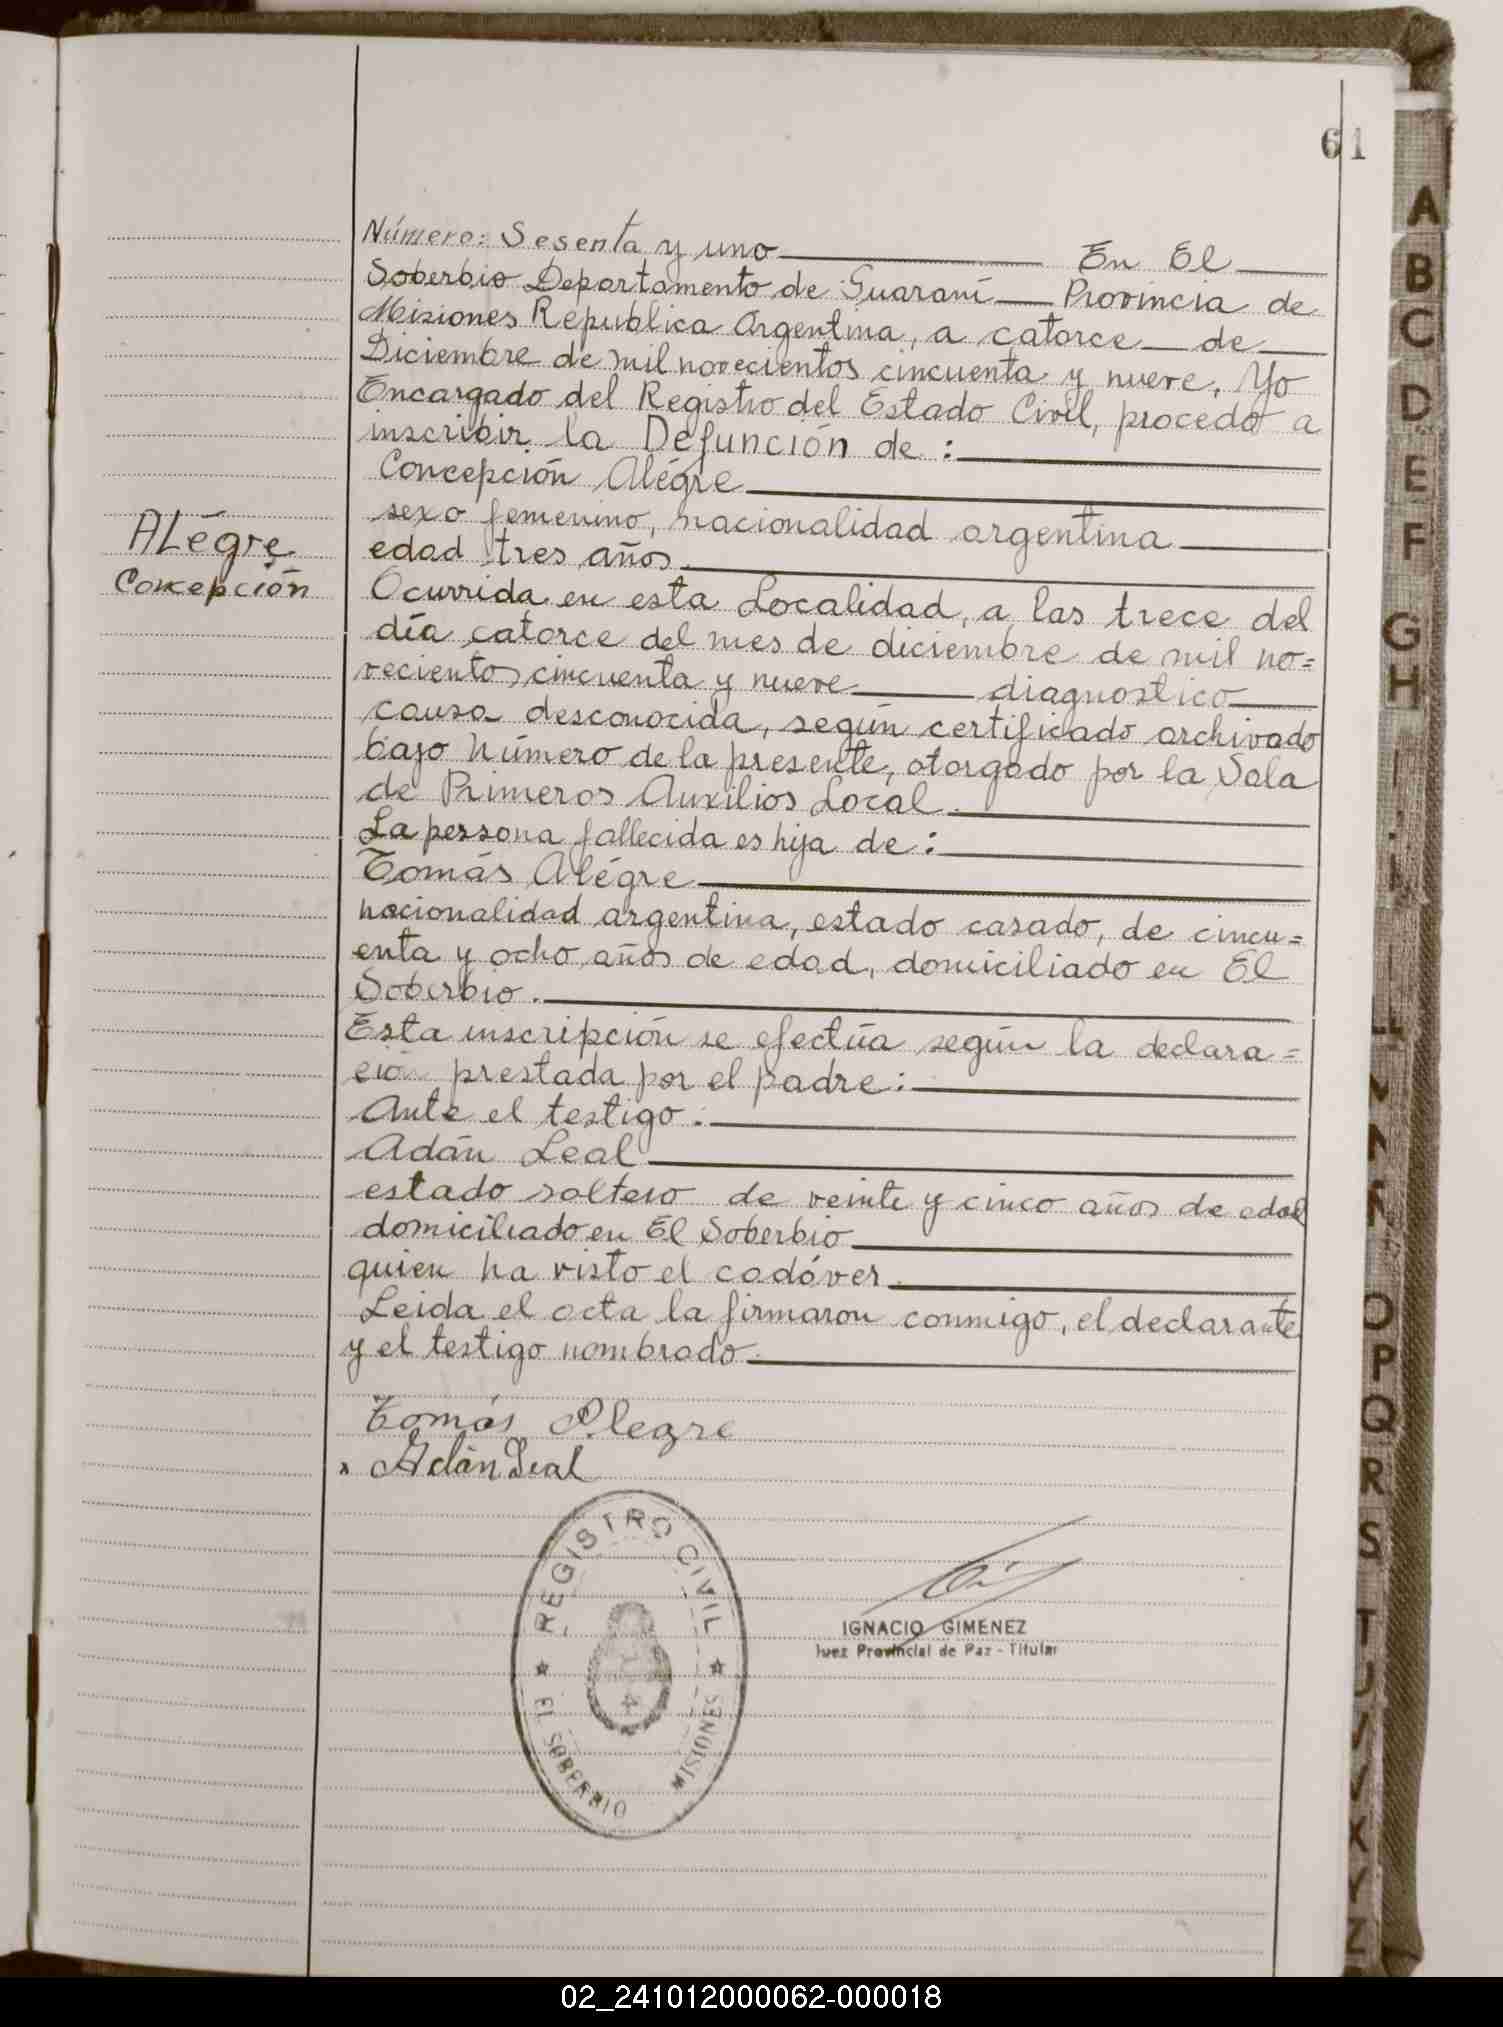 61
Número: Sesenta y uno En El
Soberbio Departamento de Guaraní Provincia de
Misiones Republica Argentina, a catorce de
Diciembre de mil novecientos cincuenta y nueve, Yo
Encargado del Registro del Estado Civil, procedo a
inscribir la Defunción de :
Concepción Alégre
sexo femenino, nacionalidad argentina
edad tres años
ALégre
Concepción
Ocurrida en esta Localidad, a las trece del
día catorce del mes de diciembre de mil no=
vecientos cincuenta y nueve diagnostico
causa desconocida, según certificado archivado
bajo número de la presente, otorgado por la Sala
de Primeros Auxilios Local.
La persona fallecida es hija de :
Tomás Alégre
nacionalidad argentina, estado casado, de cincu=
enta y ocho años de edad, domiciliado en El
Soberbio.
Esta inscripción se efectúa según la declara=
ción prestada por el padre :
Ante el testigo :
Adán Leal
estado soltero de veinte y cinco años de edad
domiciliado en El Soberbio
quien ha visto el cadáver.
Leida el acta la firmaron conmigo, el declarante
y el testigo nombrado.
Tomás Alegre
Adán Leal
REGISTRO CIVIL
EL SOBERBIO MISIONES
IGNACIO GIMENEZ
Juez Provincial de Paz - Titular
A
B
C
D
E
F
G
H
O
P
Q
R
S
T
U
V
X
Y
Z
02_241012000062-000018